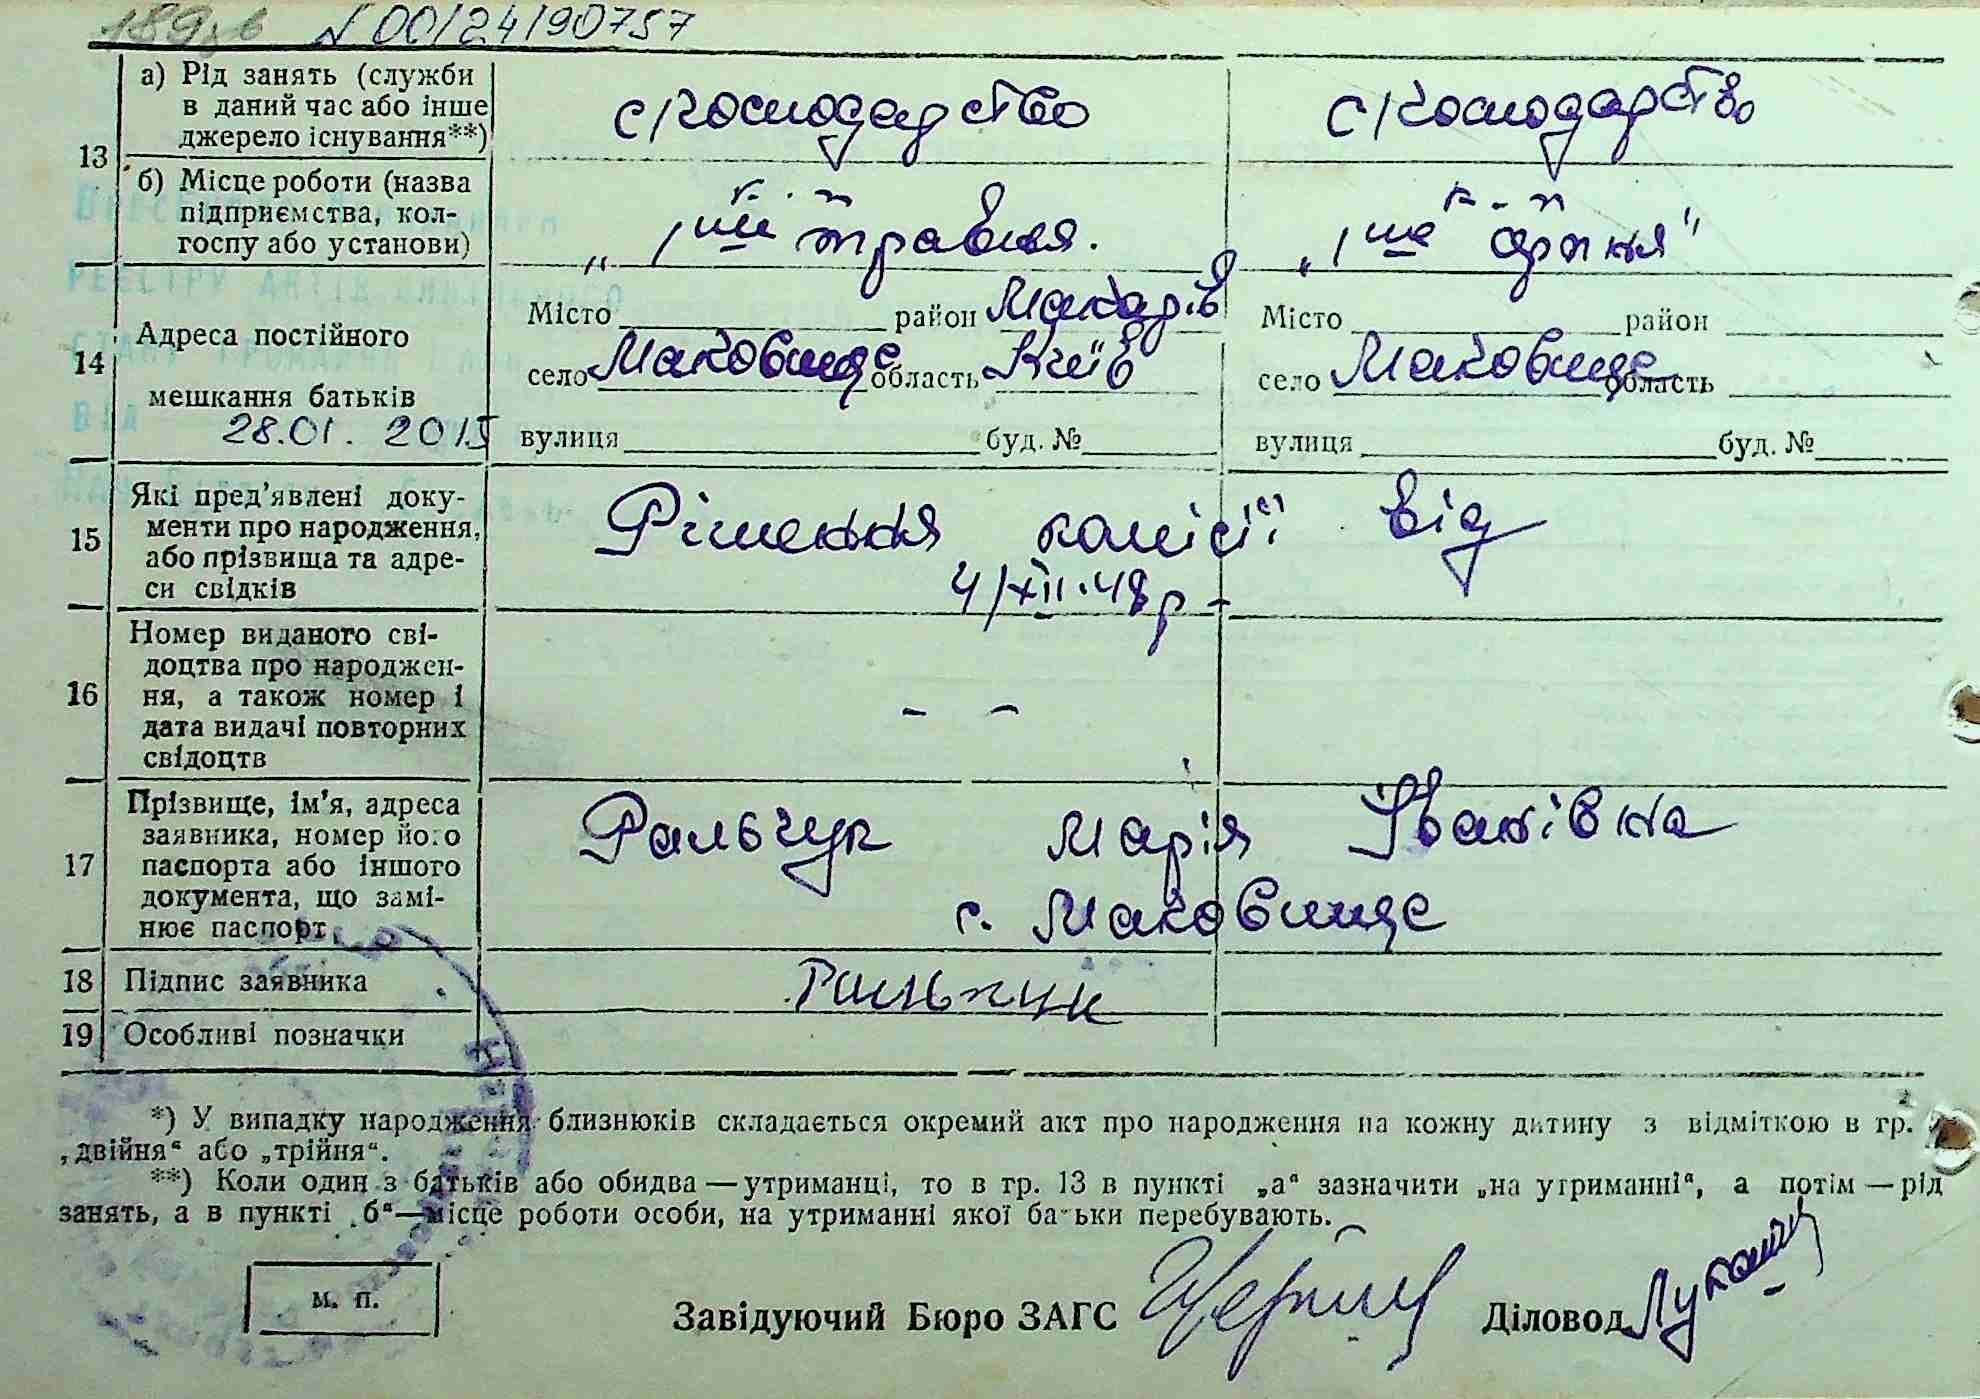 189зв N 00124190757
13
а) Рід занять (служби в даний час або інше джерело існування**)
с/господарство
с/господарство
б) Місце роботи (назва підприємства, колгоспу або установи)
к-п
„1ше травня.
к-п
„1ше травня"
14
Адреса постійного мешкання батьків
28.01.2015
Місто район Макарів
село Маковище область Київ
вулиця буд. №
Місто район
село Маковище область
вулиця буд. №
15
Які пред'явлені документи про народження, або прізвища та адреси свідків
Рішення комісії від
4/XII.48р-
16
Номер виданого свідоцтва про народження, а також номер і дата видачі повторних свідоцтв
- -
17
Прізвище, ім'я, адреса заявника, номер його паспорта або іншого документа, що замінює паспорт
Ральчук Марія Іванівна
с. Маковище
18
Підпис заявника
Ральчук
19
Особливі позначки
*) У випадку народження близнюків складається окремий акт про народження на кожну дитину з відміткою в гр. 2
„двійня" або „трійня".
**) Коли один з батьків або обидва — утриманці, то в гр. 13 в пункті „а" зазначити „на утриманні", а потім — рід
занять, а в пункті „б"—місце роботи особи, на утриманні якої батьки перебувають.
м. п.
Завідуючий Бюро ЗАГС
Діловод